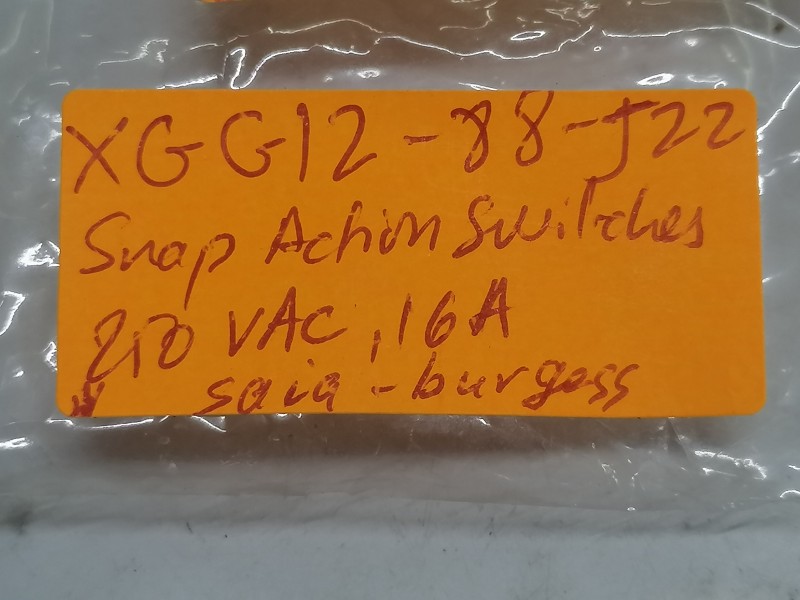 XGG12-88-J22
Snap Action Switches
250 VAC, 16A
saia-burgess